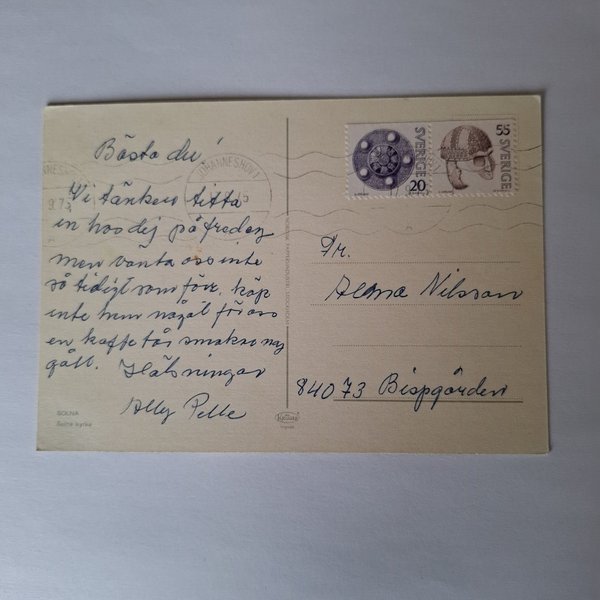 Bästa du!
Vi tänker titta
in hos dej på fredag
men vänta oss inte
så tidigt som förr. köp
inte hem något för oss
en kaffe tår smakar nog
gått. Hälsningar
Ally Pelle
SOLNA
Solna kyrka
JOHANNESHOV 1
20
SVERIGE
55
SVERIGE
Fr.
Alma Nilsson
84073 Bispgården